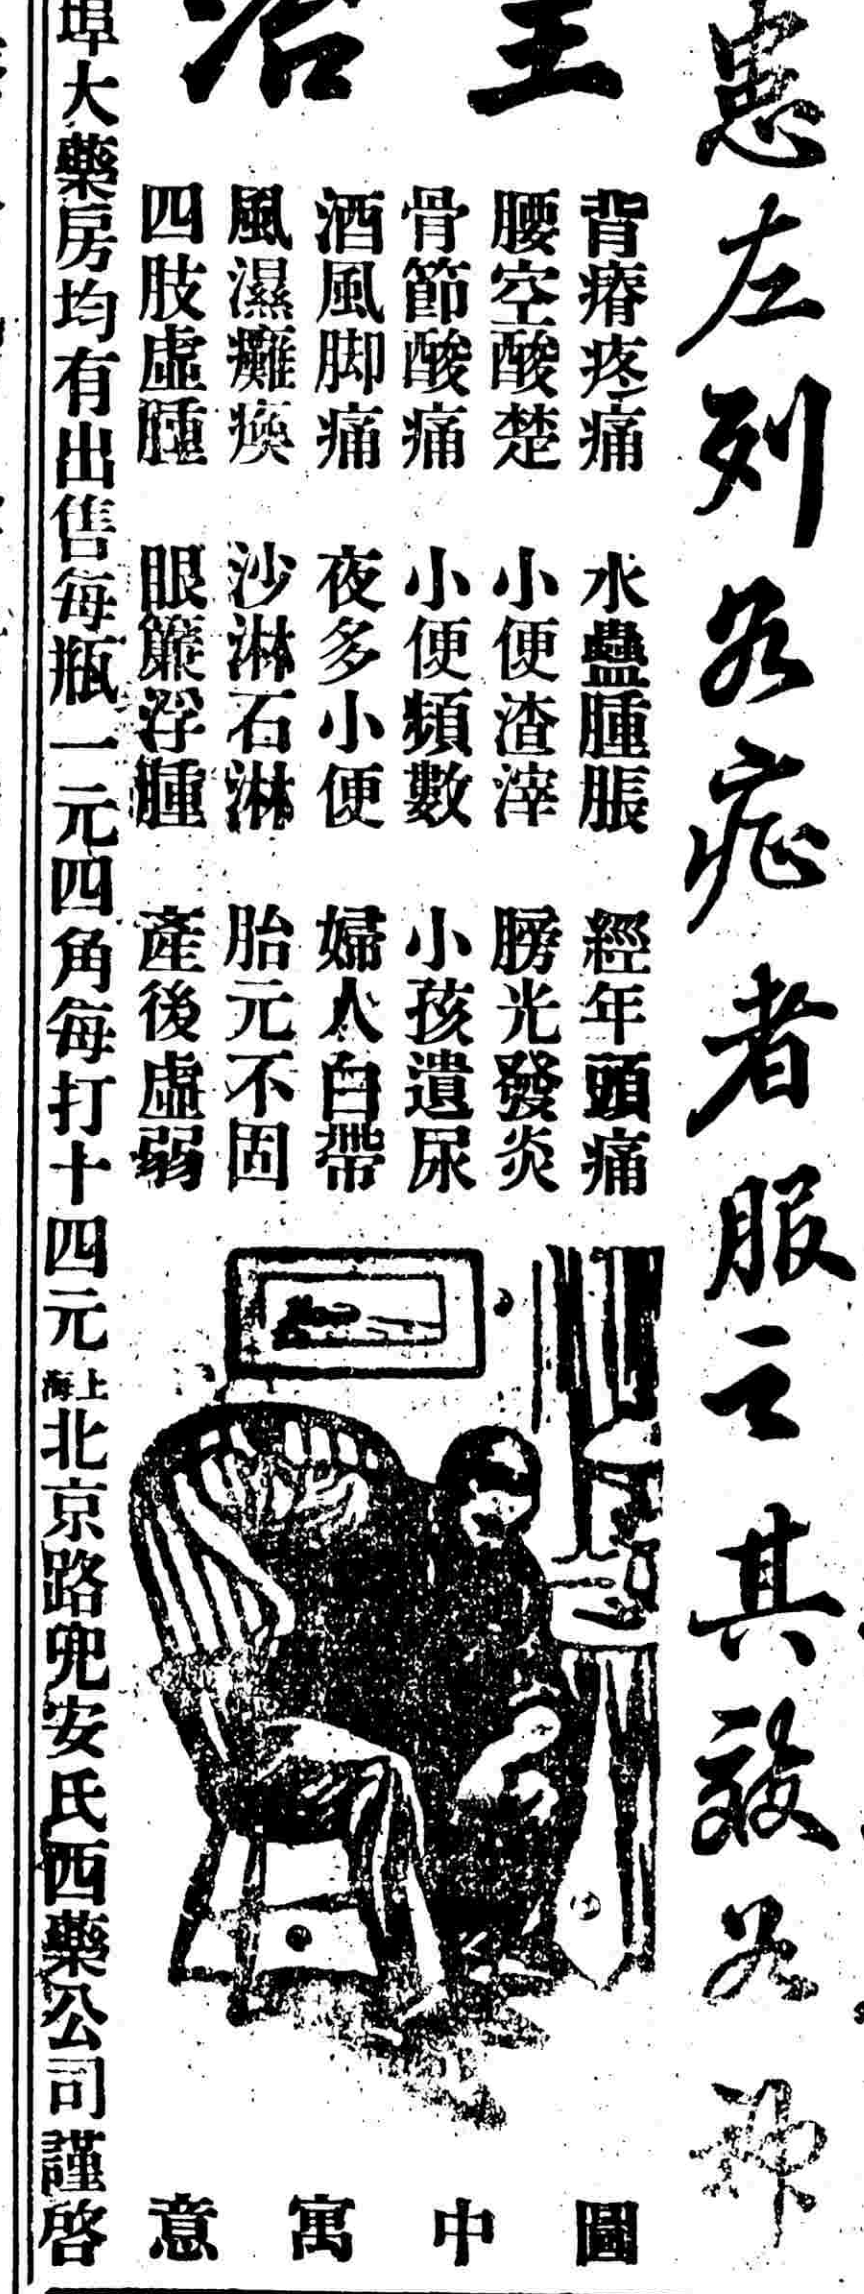 患左列各症者服之其效如神
主治
背瘠疼痛 水蠱腫脹 經年頭痛
腰空酸楚 小便渣滓 膀光發炎
骨節酸痛 小便頻數 小孩遺尿
酒風脚痛 夜多小便 婦人白帶
風濕癱瘓 沙淋石淋 胎元不固
四肢虛腫 眼簾浮腫 產後虛弱
圖中寓意
埠大藥房均有出售每瓶一元四角每打十四元上海北京路兜安氏西藥公司謹啓